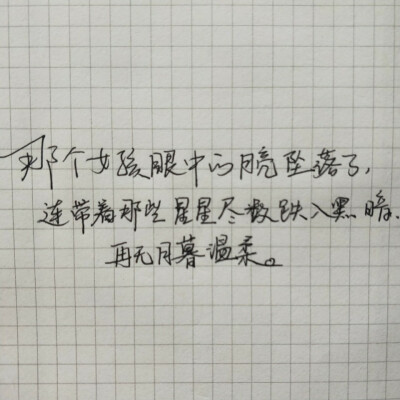 那个女孩眼中的亮坠落了,
连带着那些星星尽数跌入黑暗.
再无月暮温柔。